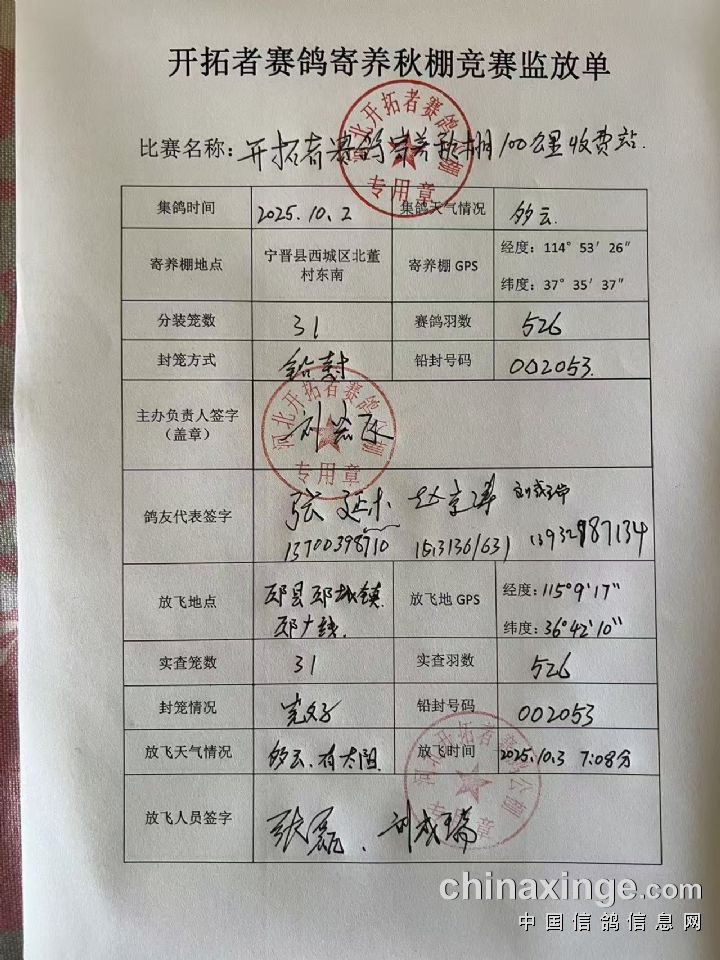 开拓者赛鸽寄养秋棚竞赛监放单
比赛名称：开拓者赛鸽寄养秋棚100公里收费站.
集鸽时间 2025.10.2 集鸽天气情况 多云
寄养棚地点 宁晋县西城区北董村东南 寄养棚 GPS 经度：114° 53′ 26″
纬度：37° 35′ 37″
分装笼数 31 赛鸽羽数 526
封笼方式 铅封 铅封号码 002053.
主办负责人签字
（盖章）
河北开拓者赛鸽公棚
专用章
鸽友代表签字 张延 赵京涛 刘成瑞
13700398710 13932987134
放飞地点 邱县邱城镇
邱广线. 放飞地 GPS 经度：115°9′17″
纬度：36°42′10″
实查笼数 31 实查羽数 526
封笼情况 完好 铅封号码 002053
放飞天气情况 多云.有太阳 放飞时间 2025.10.3 7:08分
放飞人员签字 张磊、刘成瑞
chinaxinge.com
中国信鸽信息网